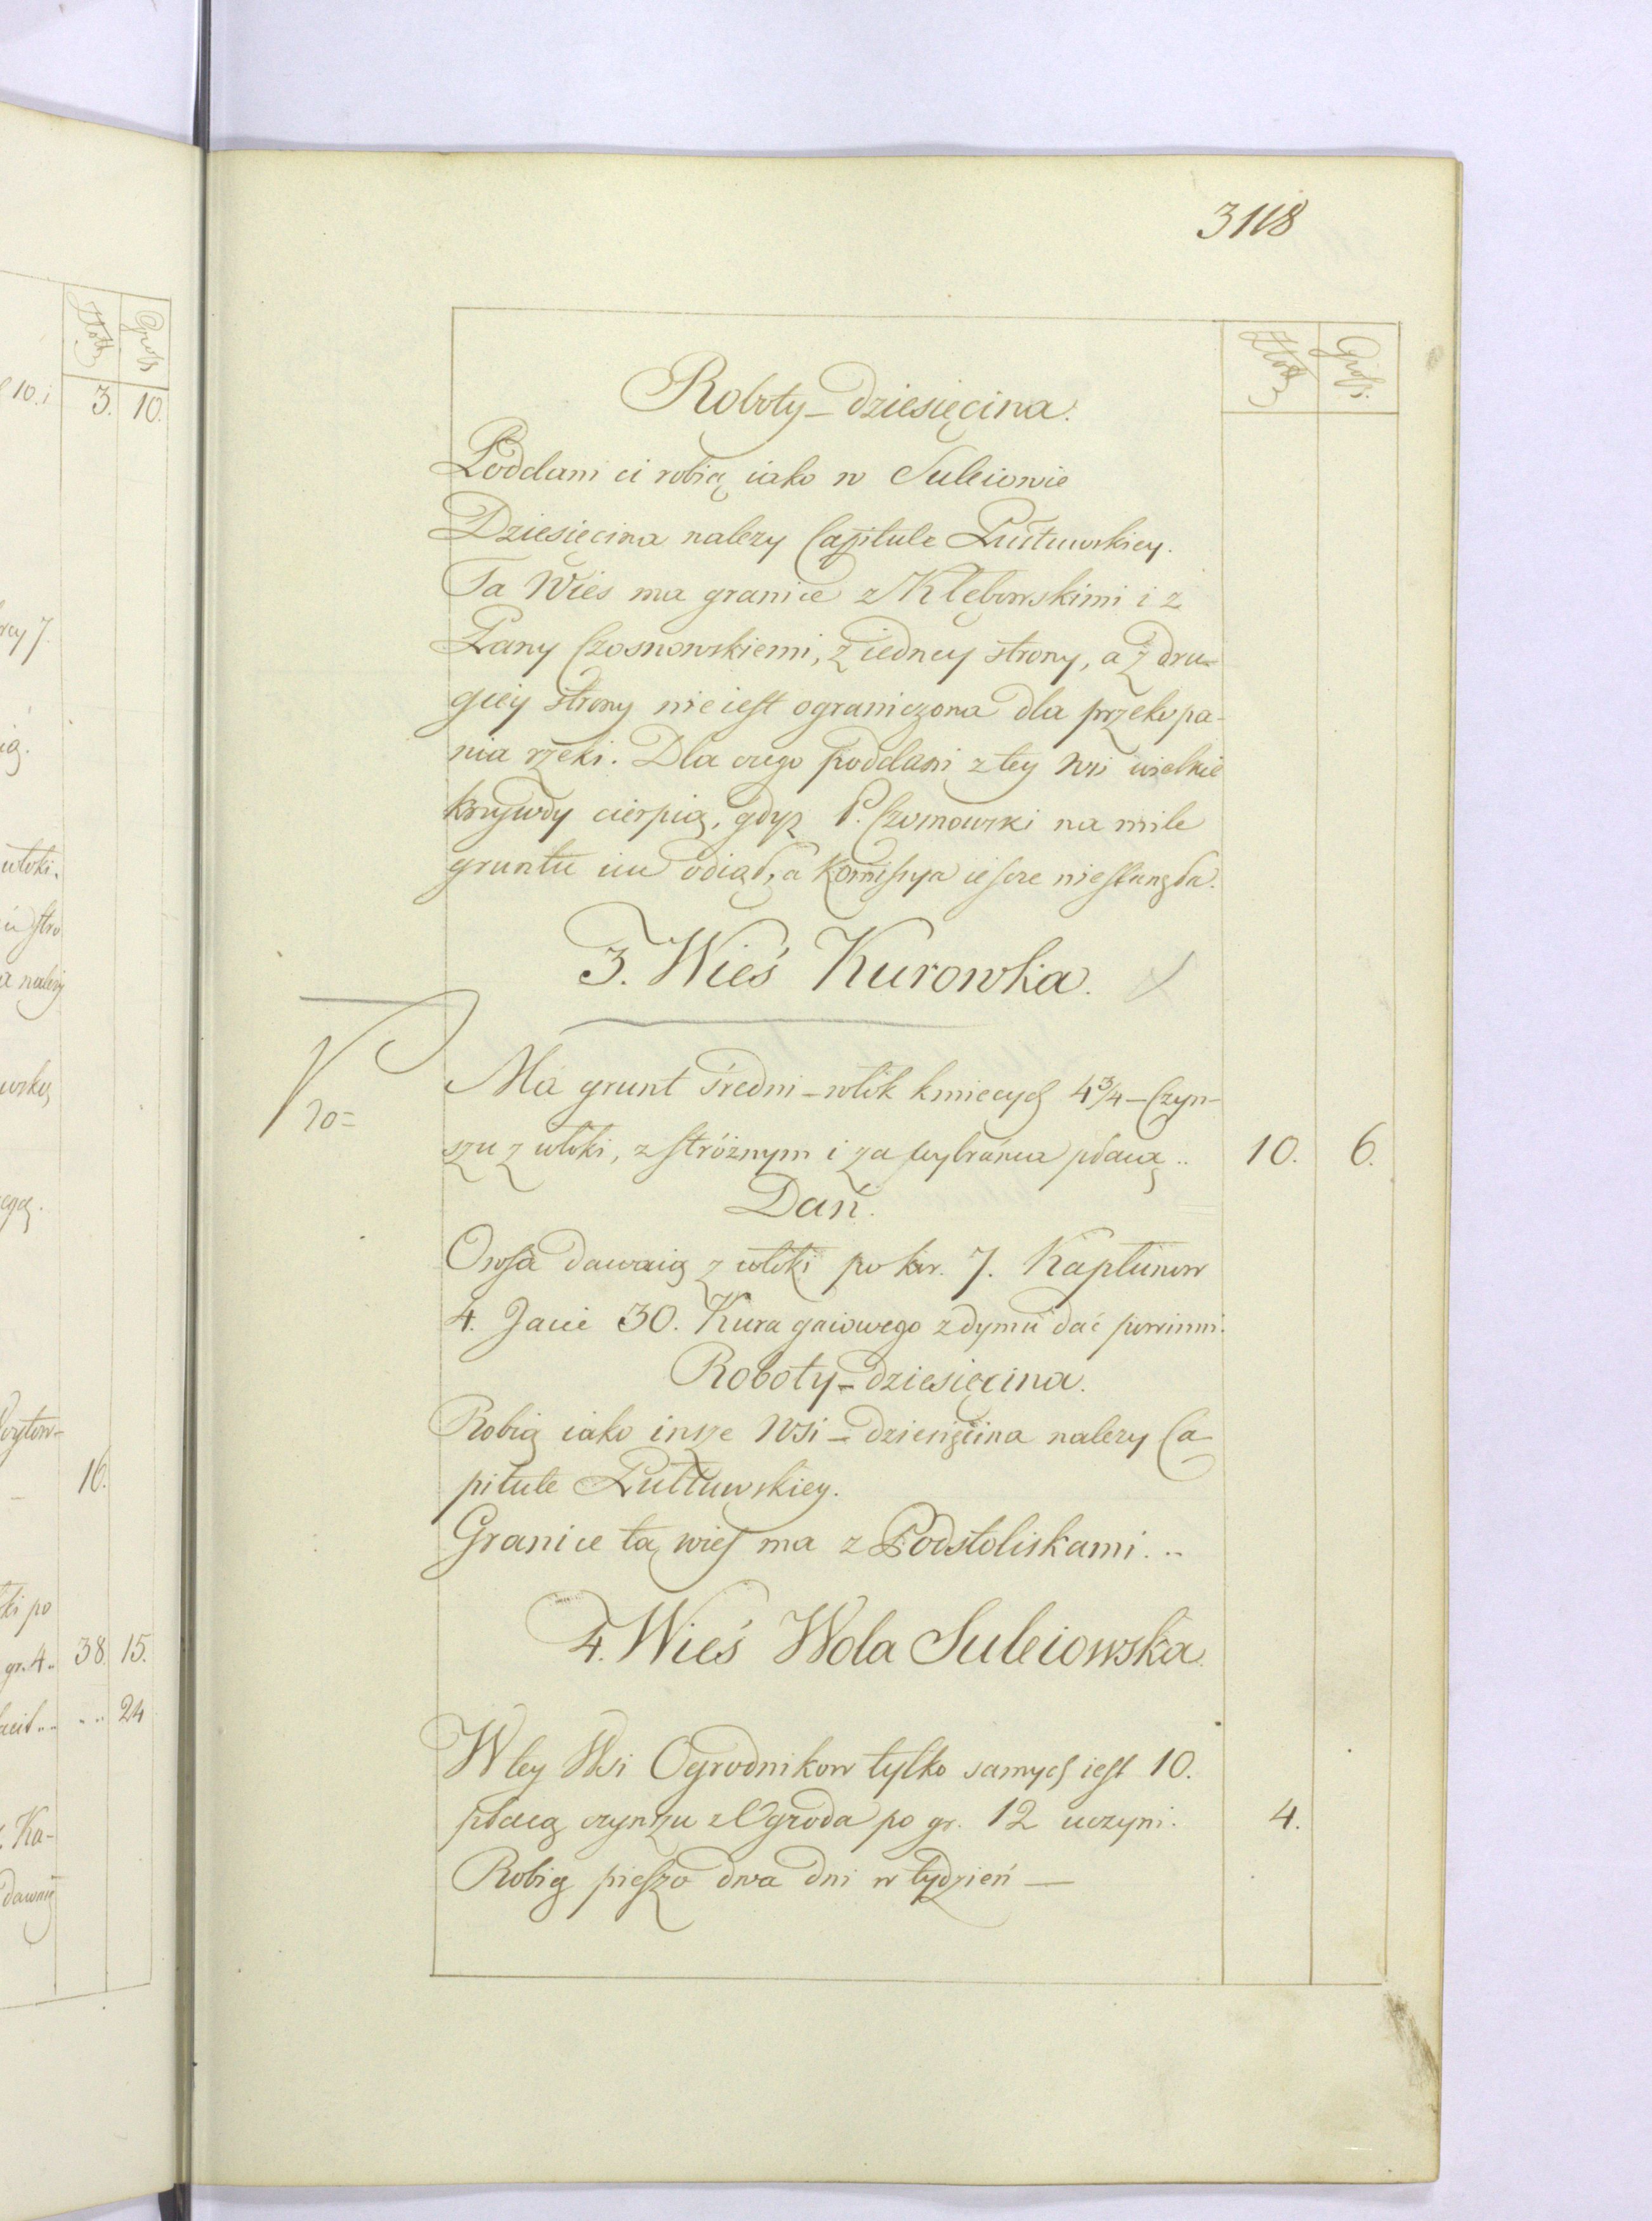 3118
Złote Grosz.
Roboty_dziesięcina.
Poddani ci robią iako w Suleiowie
Dziesięcina nalezy Capitule Pułtuwskiey.
Ta Wies ma granice z Klębowskimi i z
Pany Czosnowskiemi, z iedney strony, a z dru-
giey strony nie iest ograniczona dla przekopa-
nia rzeki. Dla czego poddani z tey wsi wielkie
krzywdy cierpią, gdyz P. Czosnowski na mile
gruntu im odiął, a Komissya iescze niestanęła.
3. Wieś Kurowka.
Ma grunt średni - włók kmiecych 4 3/4 - Czyn-
szu z włóki, z stróżnym i za wybrańca płacą .. 10. 6.
Dań.
Owsa dawaią z włóki po kor. 7. Kapłunow
4. Jaie 30. Kura gaiowego z dymu dać powinni.
Roboty_dziesięcina.
Robią iako insze wsi - dziesięcina nalezy Ca-
pitule Pułtuwskiey.
Granice ta wieś ma z Podstoliskami. ..
4. Wieś Wola Suleiowska.
W tey Wsi Ogrodnikow tylko samych iest 10.
płacą czynszu z Ogroda po gr. 12 uczyni. 4.
Robią pieszo dwa dni w tydzień —
Złote Grosz
10. i 3. 10.
włoki.
a należy
16.
ki po
gr. 4 .. 38. 15.
.. .. 24
Ka-
dawaią